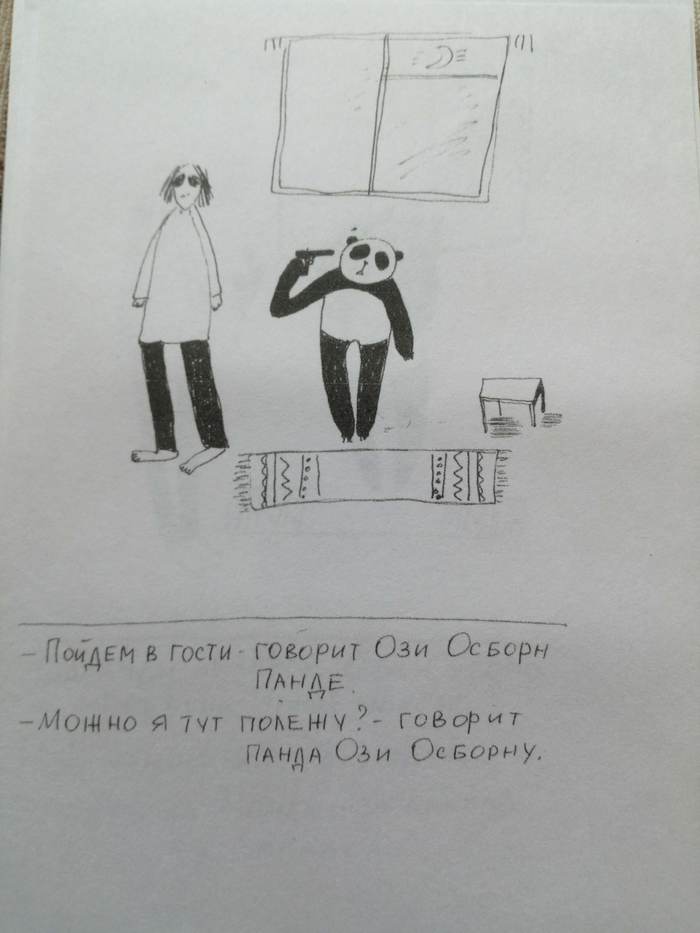 - Пойдем в гости - говорит Ози Осборн
панде.
- Можно я тут полежу? - говорит
панда Ози Осборну.